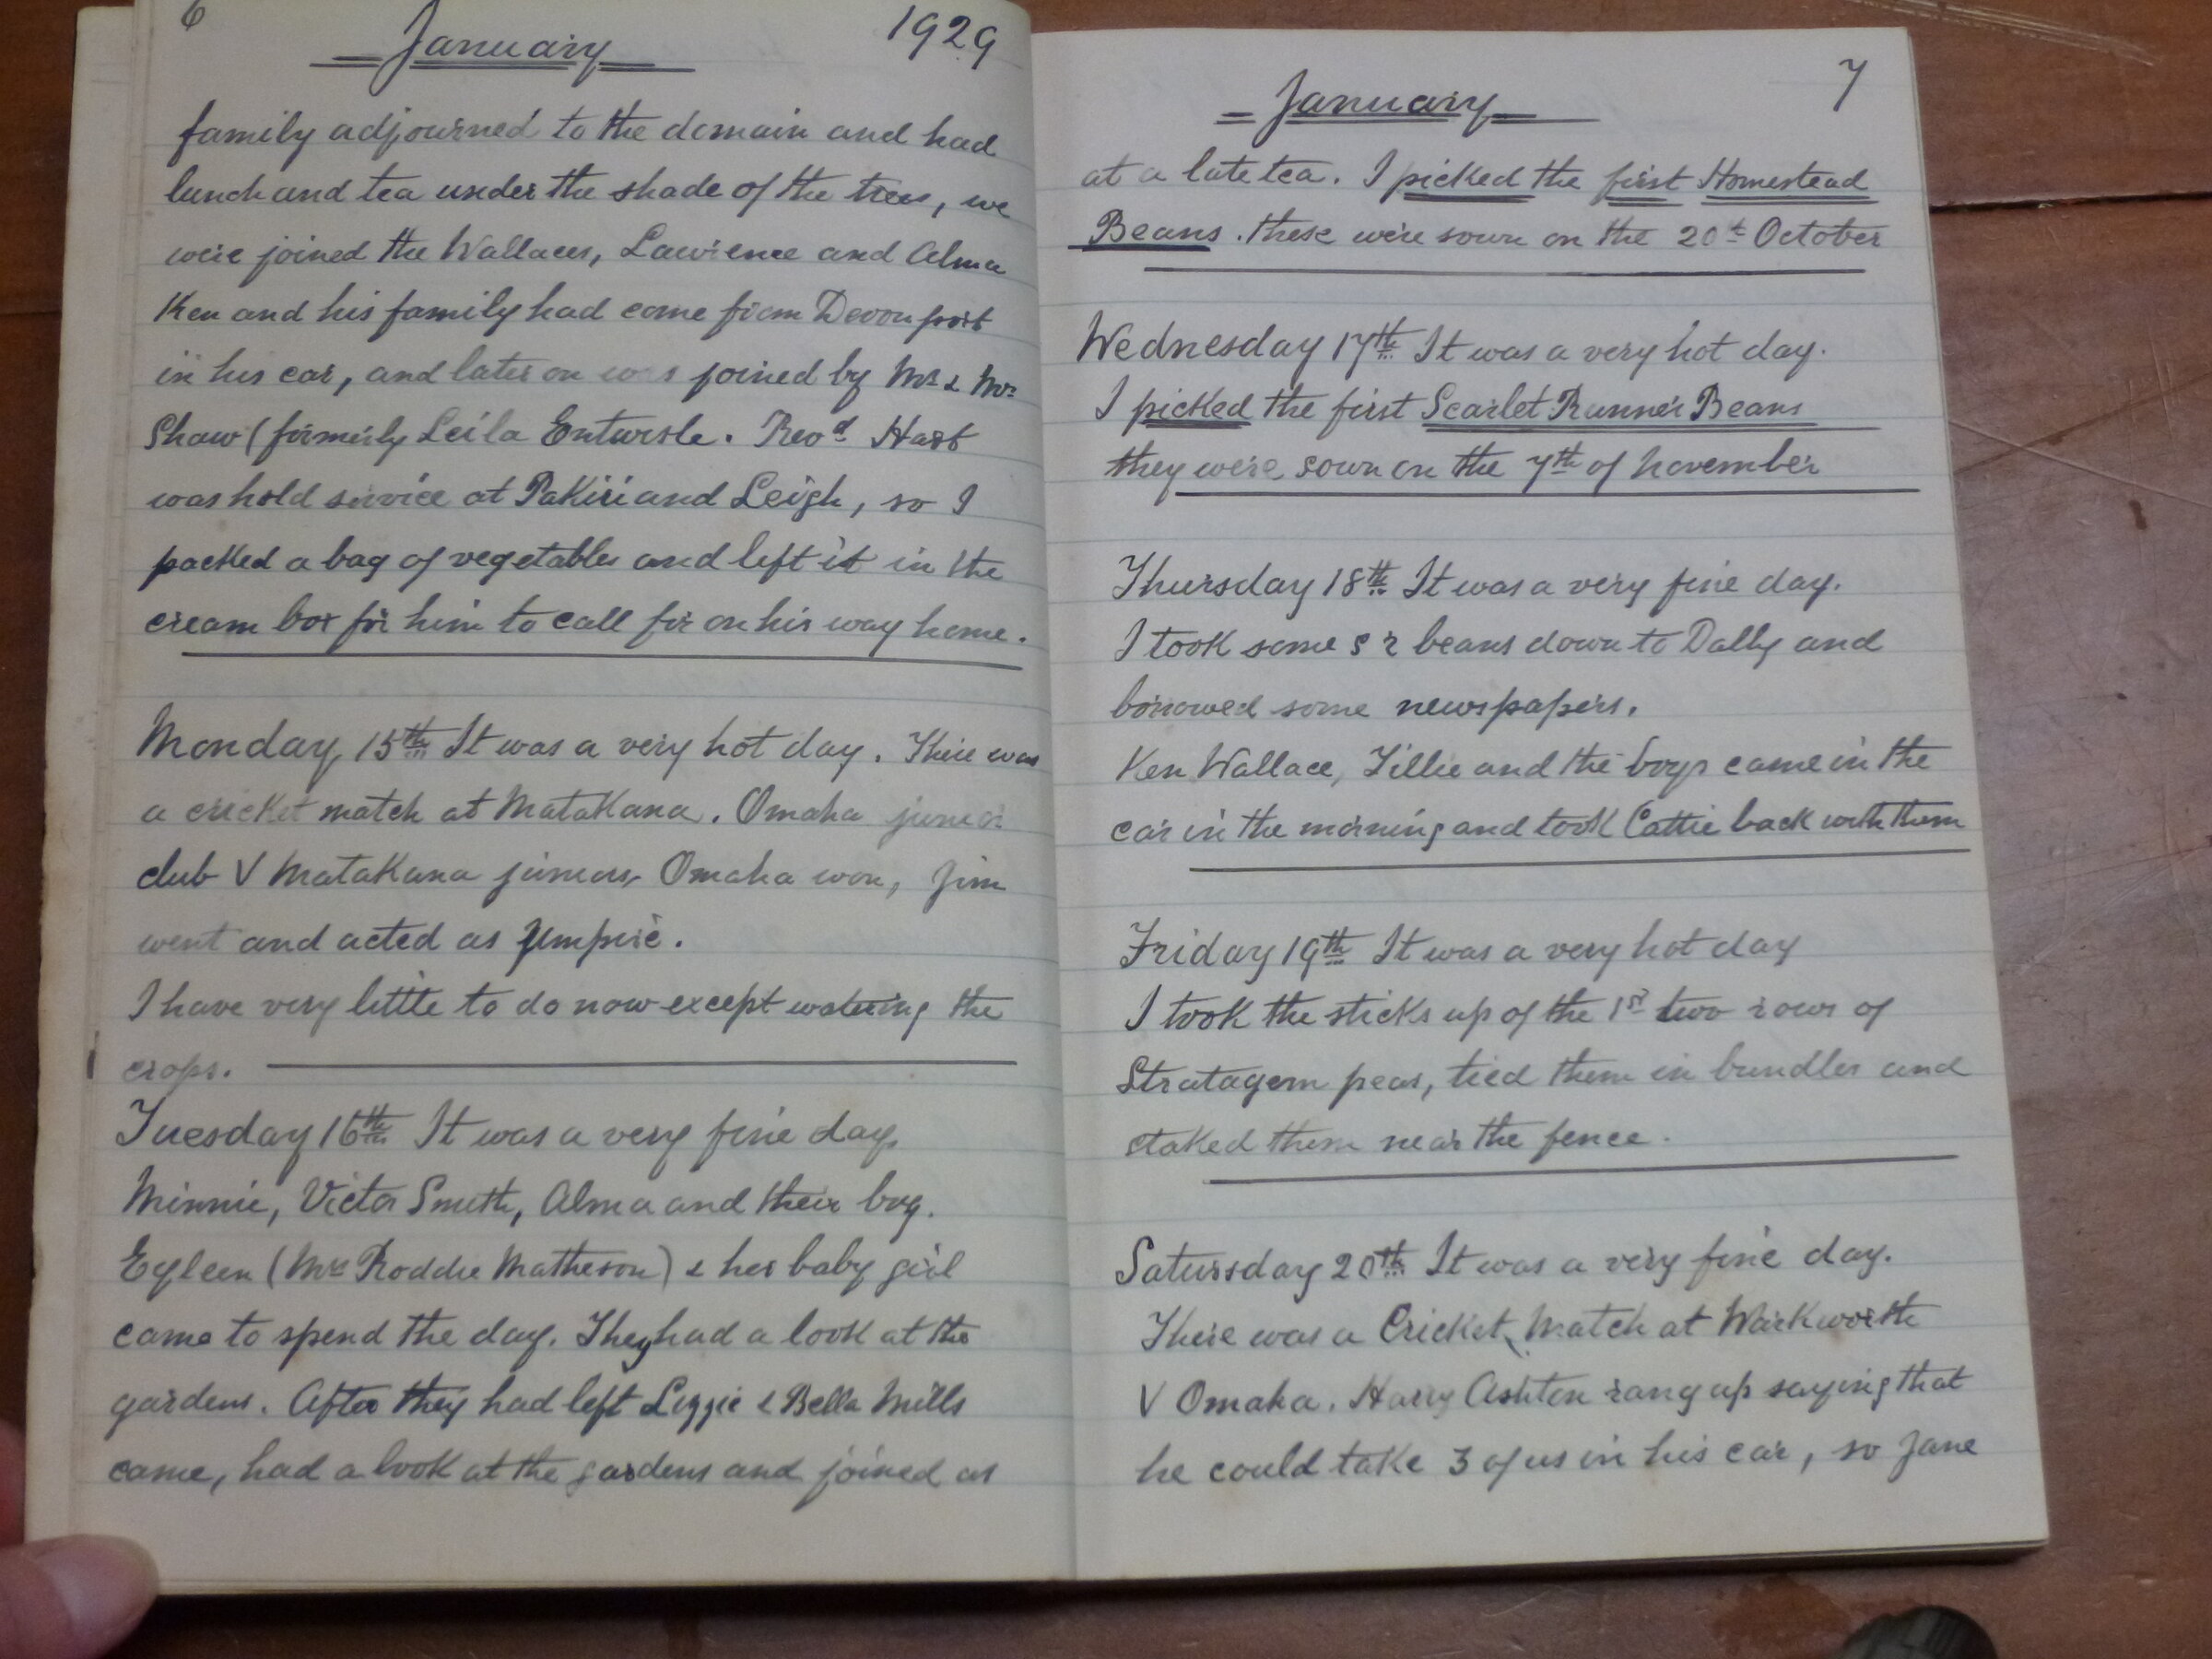 6
January
1929
family adjourned to the domain and had
lunch and tea under the shade of the trees, we
were joined the Wallaces, Lawrence and Alma
Ken and his family had come from Devonport
in his car, and later on was joined by Mr & Mrs
Shaw (formerly Leila Entwisle. Revd Hart
was hold service at Pakiri and Leigh, so I
packed a bag of vegetables and left it in the
cream box for him to call for on his way home.
Monday 15th It was a very hot day. There was
a cricket match at Matakana. Omaha junior
club V Matakana juniors, Omaha won, Jim
went and acted as Umpire.
I have very little to do now except watering the
crops.
Tuesday 16th It was a very fine day
Minnie, Victor Smith, Alma and their boy.
Eyleen (Mrs Roddie Matheson) & her baby girl
came to spend the day. They had a look at the
gardens. After they had left Lizzie & Bella Mills
came, had a look at the gardens and joined us
7
January
at a late tea. I picked the first Homestead
Beans. these were sown on the 20th October
Wednesday 17th It was a very hot day.
I picked the first Scarlet Runner Beans
they were sown on the 7th of November
Thursday 18th It was a very fine day.
I took some s r beans down to Dally and
borrowed some newspapers.
Ken Wallace, Tillie and the boys came in the
car in the morning and took Cattie back with them
Friday 19th It was a very hot day
I took the sticks up of the 1st two rows of
Stratagem peas, tied them in bundles and
staked them near the fence.
Saturday 20th It was a very fine day.
There was a Cricket Match at Warkworth
V Omaha. Harry Ashton rang up saying that
he could take 3 of us in his car, so Jane